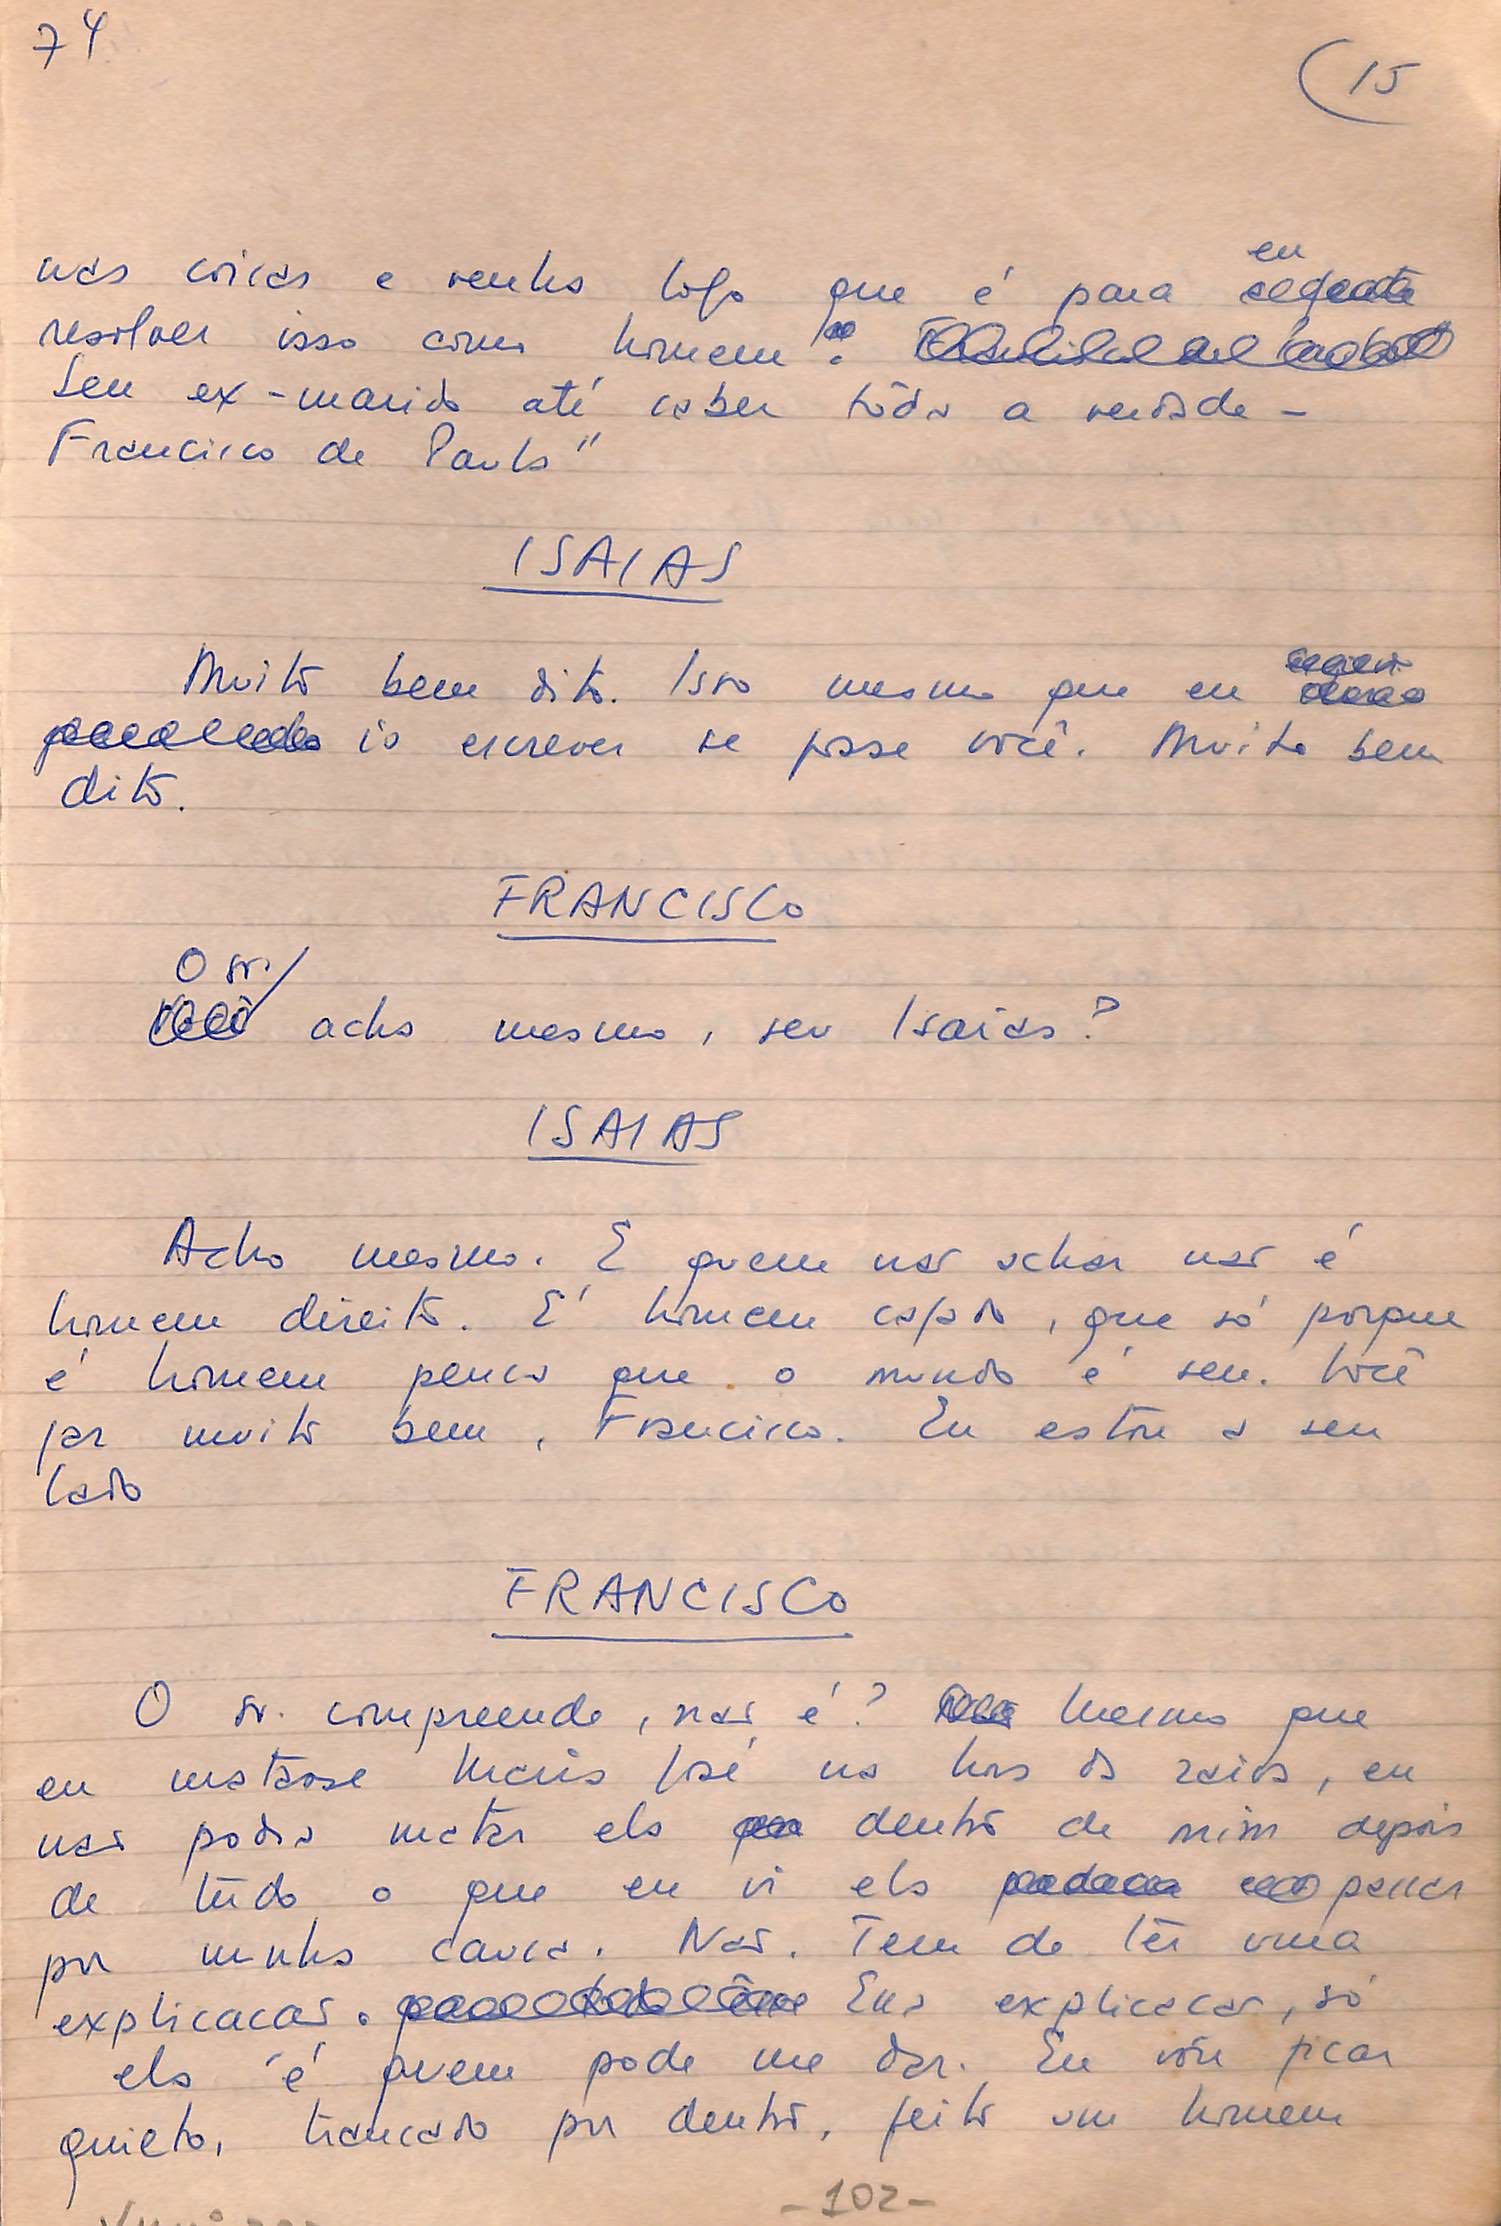 74
(15
nas coisas e venha logo que é para eu
resolver isso como homem.
Seu ex-marido até saber tôda a verdade -
Francisco de Paula"
ISAIAS
Muito bem dito. Isso mesmo que eu
ia escrever se fosse você. Muito bem
dito.
FRANCISCO
O sr.
acha mesmo, seu Isaias?
ISAIAS
Acho mesmo. E quem não achar não é
homem direito. É homem safado, que só porque
é homem pensa que o mundo é seu. Você
faz muito bem, Francisco. Eu estou a seu
lado
FRANCISCO
O sr. compreende, não é? Mesmo que
eu matasse Maria José na hora da raiva, eu
não podia matar ela dentro de mim depois
de tudo o que eu vi ela passar
por minha causa. Não. Tem de ter uma
explicacão. Essa explicacão, só
ela é quem pode me dar. Eu vou ficar
quieto, trancado por dentro, feito um homem
-102-